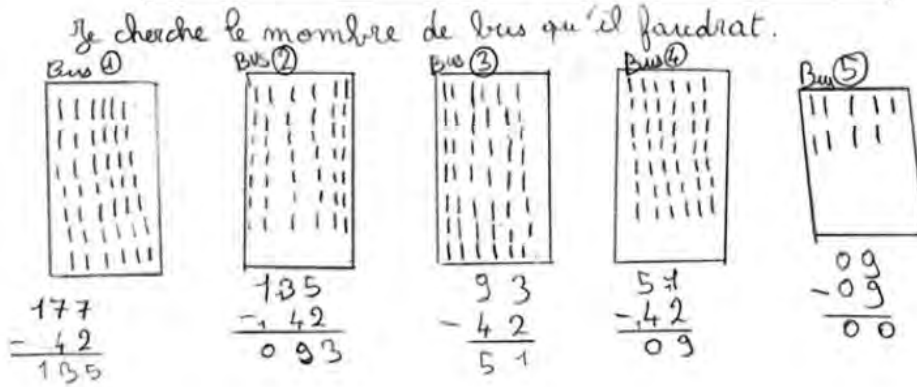 Je cherche le mombre de bus qu'il faudrat.
Bus ①
Bus ②
Bus ③
Bus ④
Bus ⑤
177
- 42
135
135
- 42
093
93
- 42
51
51
- 42
09
09
- 09
00